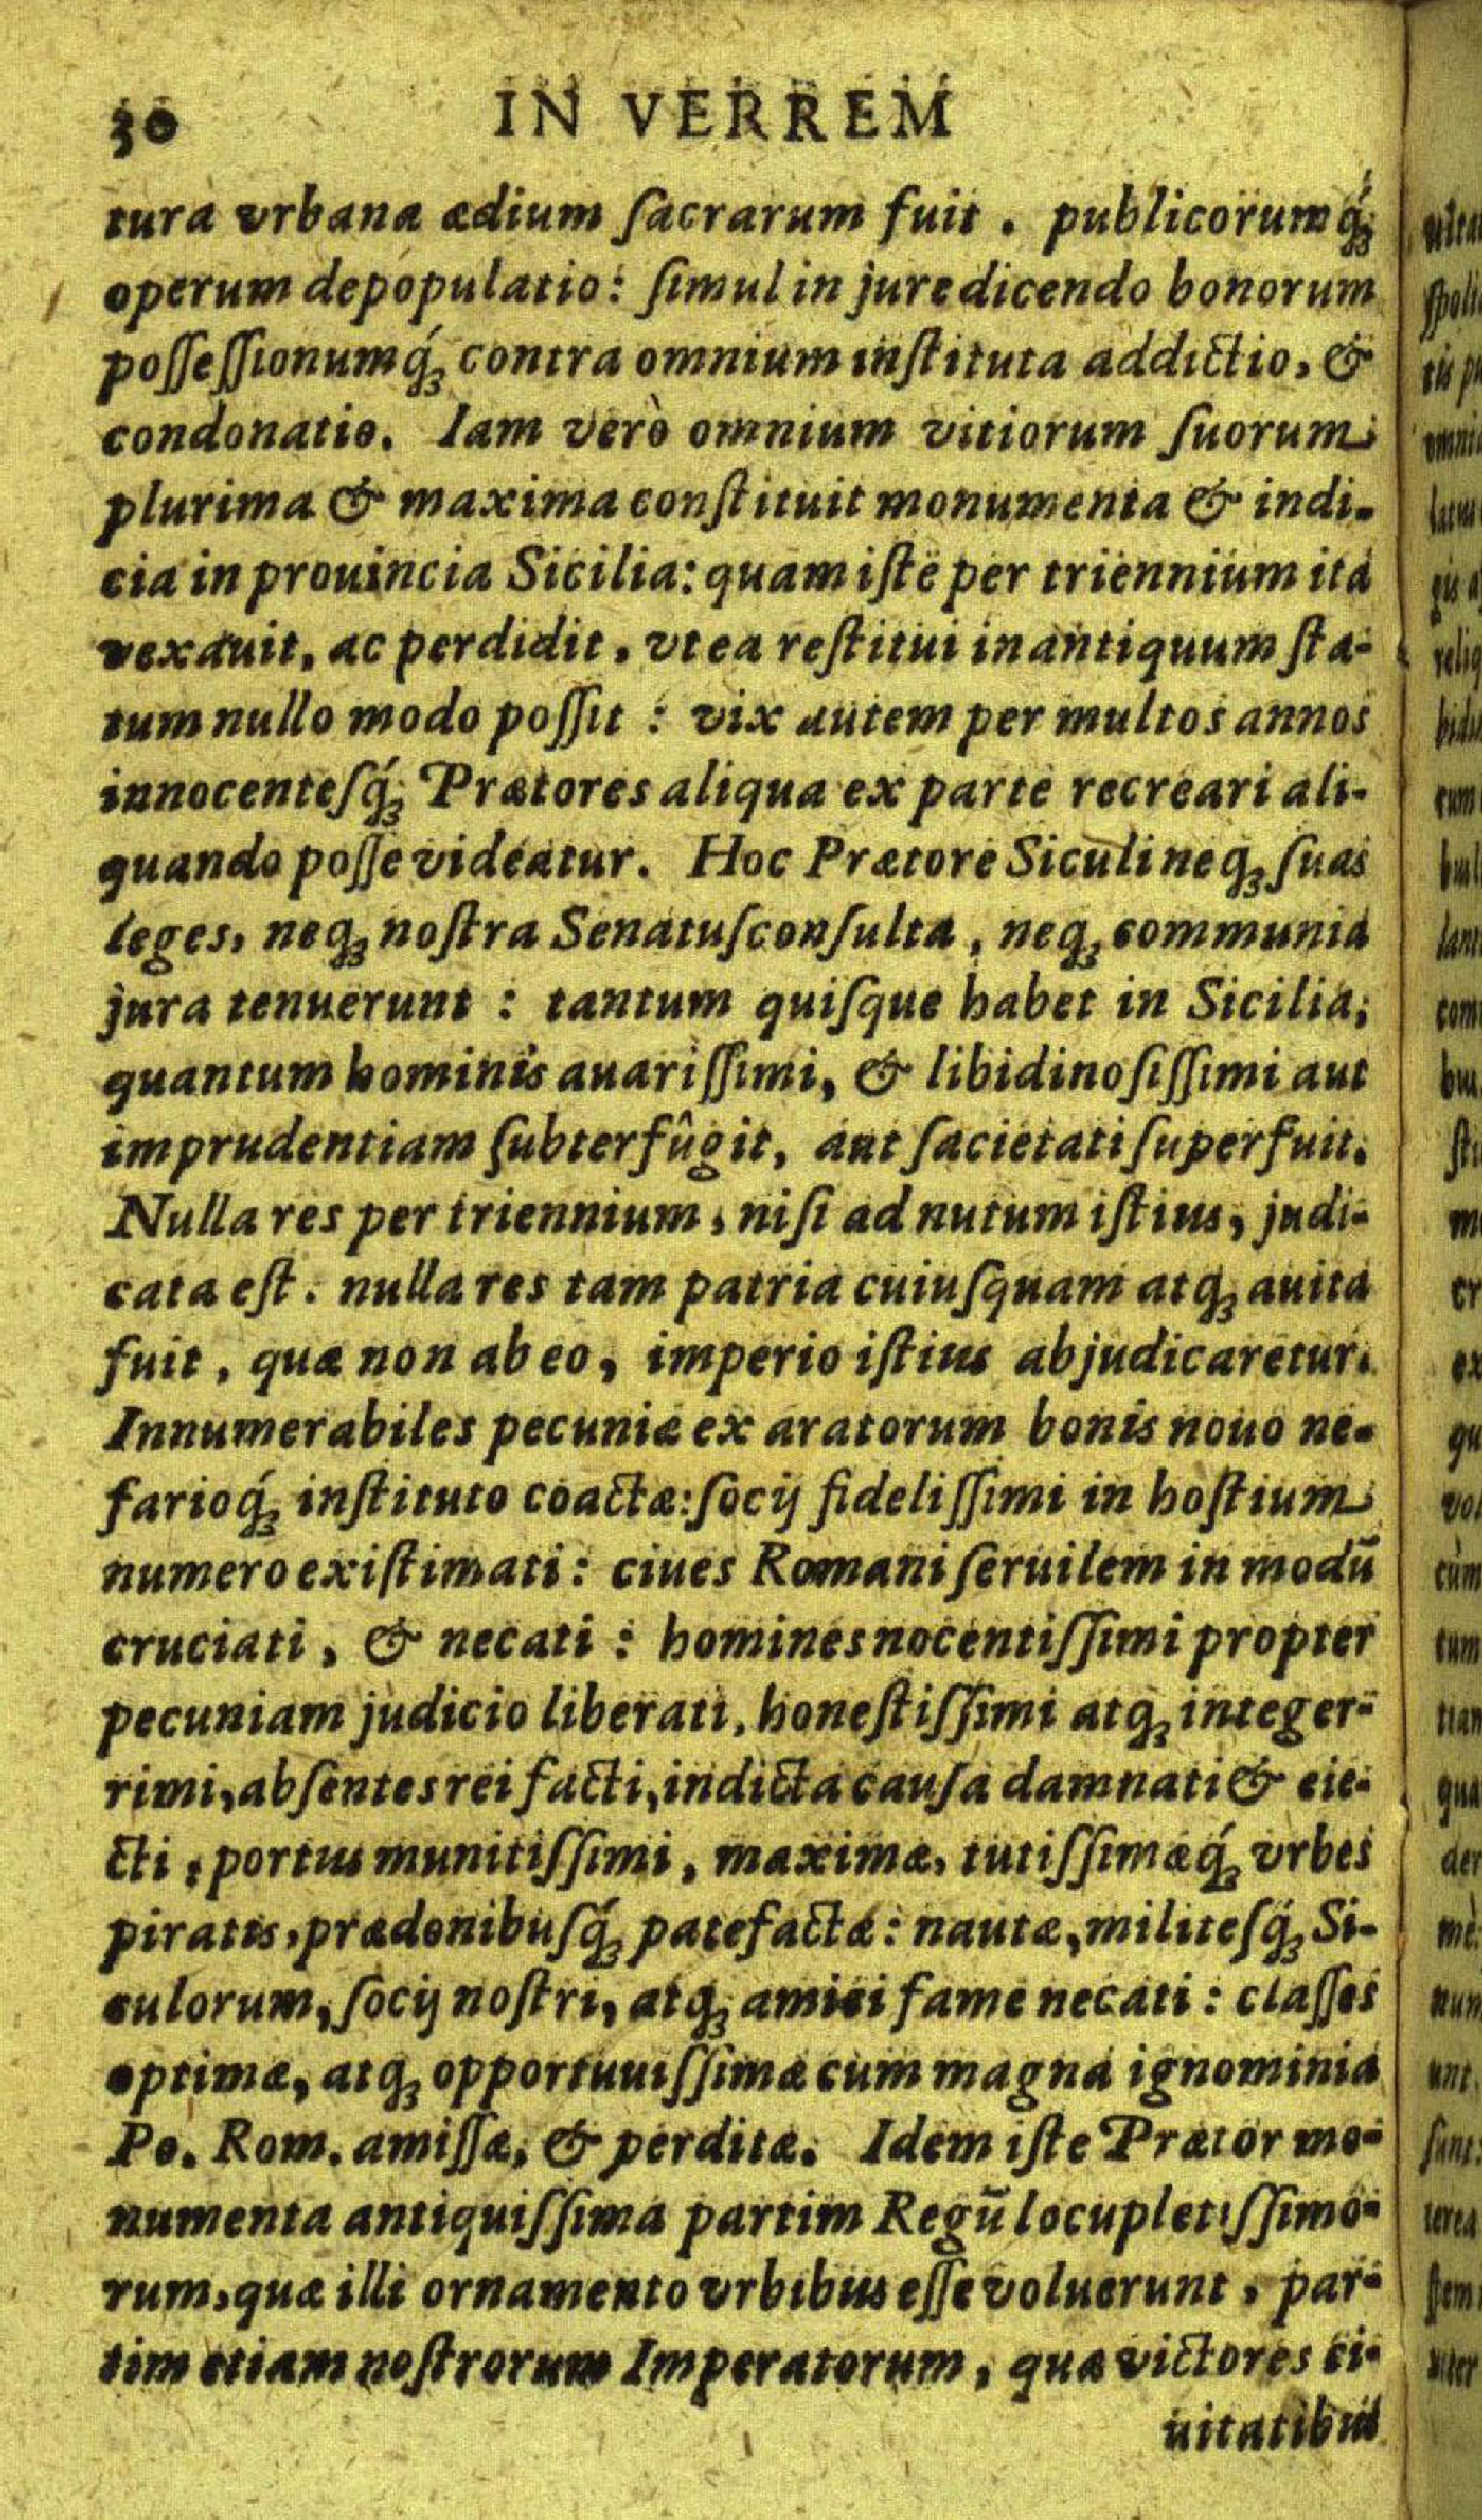 30 IN VERREM
tura vrbana ædium ſacrarum fuit . publicorumq́;
operum depopulatio: ſimul in jure dicendo bonorum
poſſeſſionumq́; contra omnium inſtituta addictio, &
condonatio. Iam verò omnium vitiorum ſuorum
plurima & maxima conſtituit monumenta & indi-
cia in prouincia Sicilia: quam iſte per triennium ita
vexauit, ac perdidit, vt ea reſtitui in antiquum ſta-
tum nullo modo poſſit : vix autem per multos annos
innocenteſq́; Prætores aliqua ex parte recreari ali-
quando poſſe videatur. Hoc Prætore Siculi neq; ſuas
leges, neq; noſtra Senatuſconſulta, neq; communia
jura tenuerunt : tantum quiſque habet in Sicilia,
quantum hominis auariſſimi, & libidinoſiſſimi aut
imprudentiam ſubterfûgit, aut ſacietati ſuperfuit.
Nulla res per triennium, niſi ad nutum iſtius, judi-
cata eſt. nulla res tam patria cuiuſquam atq; auita
fuit, quæ non ab eo, imperio iſtius abjudicaretur.
Innumerabiles pecuniæ ex aratorum bonis nouo ne-
farioq́; inſtituto coactæ: ſocij fideliſſimi in hoſtium
numero exiſtimati: ciues Romani ſeruilem in modū
cruciati, & necati : homines nocentiſſimi propter
pecuniam judicio liberati, honeſtiſſimi atq; integer-
rimi, abſentes rei facti, indicta cauſa damnati & eie-
cti, portus munitiſſimi, maximæ, tutiſſimæq́; vrbes
piratis, prædonibuſq́; patefactæ: nautæ, militeſq́; Si-
culorum, ſocij noſtri, atq; amici fame necati : claſſes
optimæ, atq; opportuuiſſimæ cum magna ignominia
Po. Rom. amiſſæ, & perditæ. Idem iſte Prætor mo-
numenta antiquiſſima partim Regū locupletiſſimo-
rum, quæ illi ornamento vrbibus eſſe voluerunt, par-
tim etiam noſtrorum Imperatorum, quæ victores ci-
uitatibus